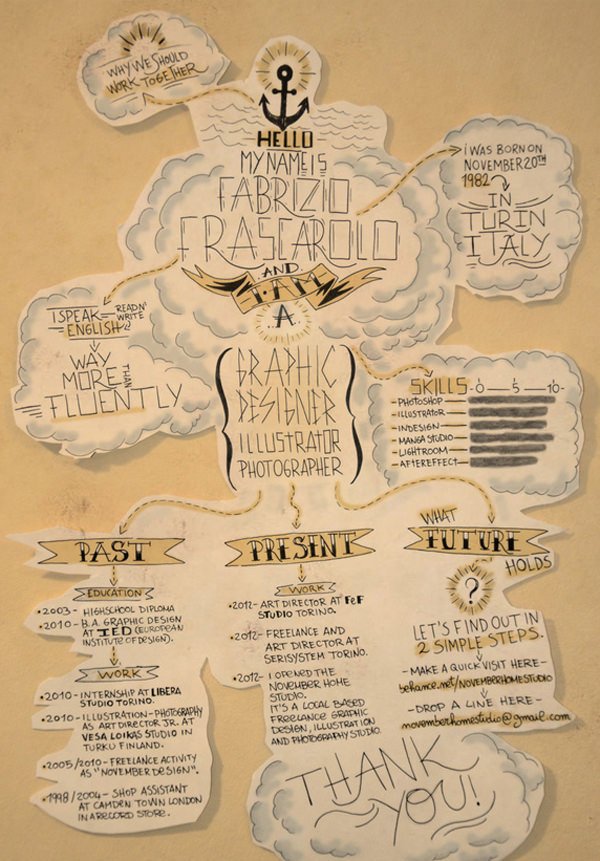 WHY WE SHOULD
WORK TOGETHER
HELLO
MY NAME IS
FABRIZIO
FRASCAROLO
AND
I AM
A
I WAS BORN ON
NOVEMBER 20TH
1982
IN
TURIN
ITALY
I SPEAK
ENGLISH
READ N'
WRITE
WAY
MORE
THAN
FLUENTLY
GRAPHIC
DESIGNER
ILLUSTRATOR
PHOTOGRAPHER
SKILLS 0 — 5 — 10
PHOTOSHOP
ILLUSTRATOR
INDESIGN
MANGA STUDIO
LIGHTROOM
AFTEREFFECT
PAST
EDUCATION
• 2003 - HIGHSCHOOL DIPLOMA
• 2010 - B.A. GRAPHIC DESIGN
AT IED (EUROPEAN
INSTITUTE OF DESIGN).
WORK
• 2010 - INTERNSHIP AT LIBERA
STUDIO TORINO.
• 2010 - ILLUSTRATION - PHOTOGRAPHY
AS ART DIRECTOR JR. AT
VESA LOIKAS STUDIO IN
TURKU FINLAND.
• 2005/2010 - FREELANCE ACTIVITY
AS "NOVEMBER DESIGN".
• 1998/2004 - SHOP ASSISTANT
AT CAMDEN TOWN LONDON
IN A RECORD STORE.
PRESENT
WORK
• 2012 - ART DIRECTOR AT FeF
STUDIO TORINO.
• 2012 - FREELANCE AND
ART DIRECTOR AT
SERISYSTEM TORINO.
• 2012 - I OPENED THE
NOVEMBER HOME
STUDIO.
IT'S A LOCAL BASED
FREELANCE GRAPHIC
DESIGN, ILLUSTRATION
AND PHOTOGRAPHY STUDIO.
WHAT
FUTURE
HOLDS
?
LET'S FIND OUT IN
2 SIMPLE STEPS.
- MAKE A QUICK VISIT HERE -
behance.net/NOVEMBERHOMESTUDIO
- DROP A LINE HERE -
novemberhomestudio@gmail.com
THANK
YOU!